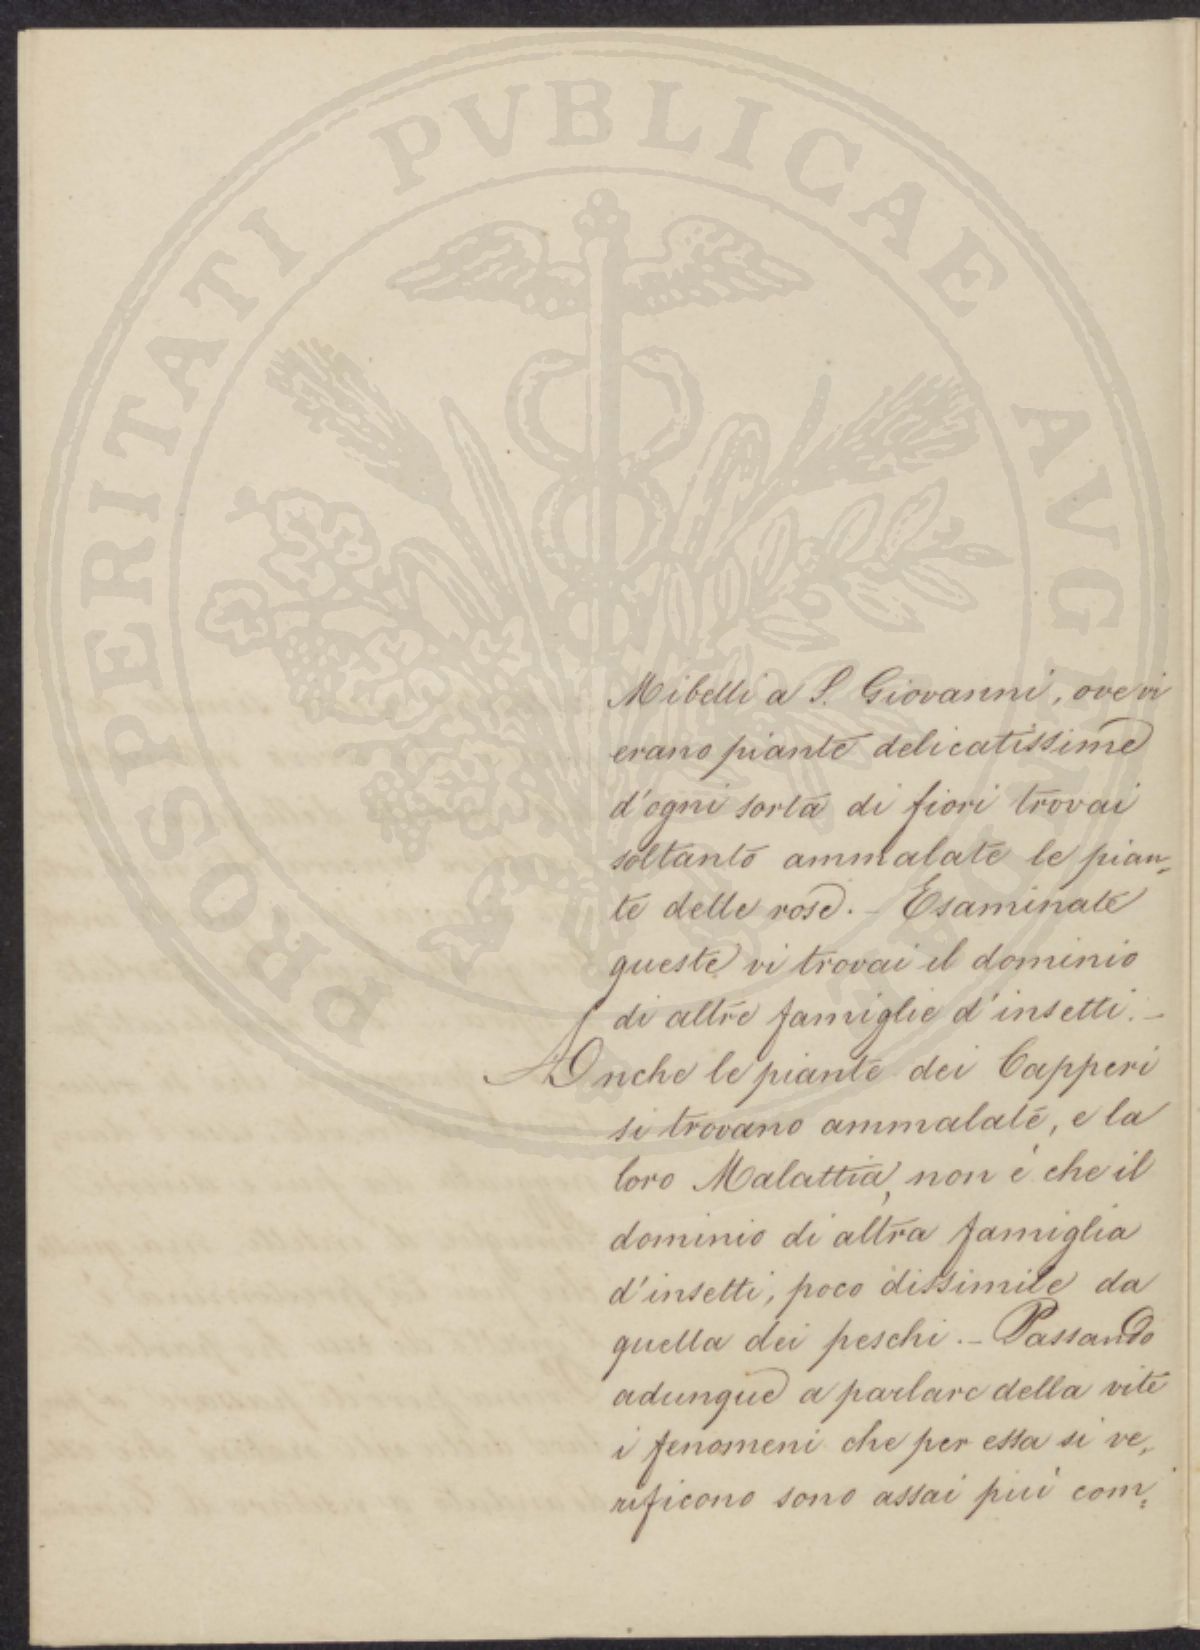 PROSPERITATI PVBLICAE AVGENDAE
Mibelli a S. Giovanni, ove vi
erano piante delicatissime
d'ogni sorta di fiori trovai
soltanto ammalate le pian=
te delle rose. - Esaminate
queste vi trovai il dominio
di altre famiglie d'insetti. -
Anche le piante dei Capperi
si trovano ammalate, e la
loro Malattia, non è che il
dominio di altra famiglia
d'insetti, poco dissimile da
quella dei peschi. - Passando
adunque a parlare della vite
i fenomeni che per essa si ve,
rificono sono assai più com=